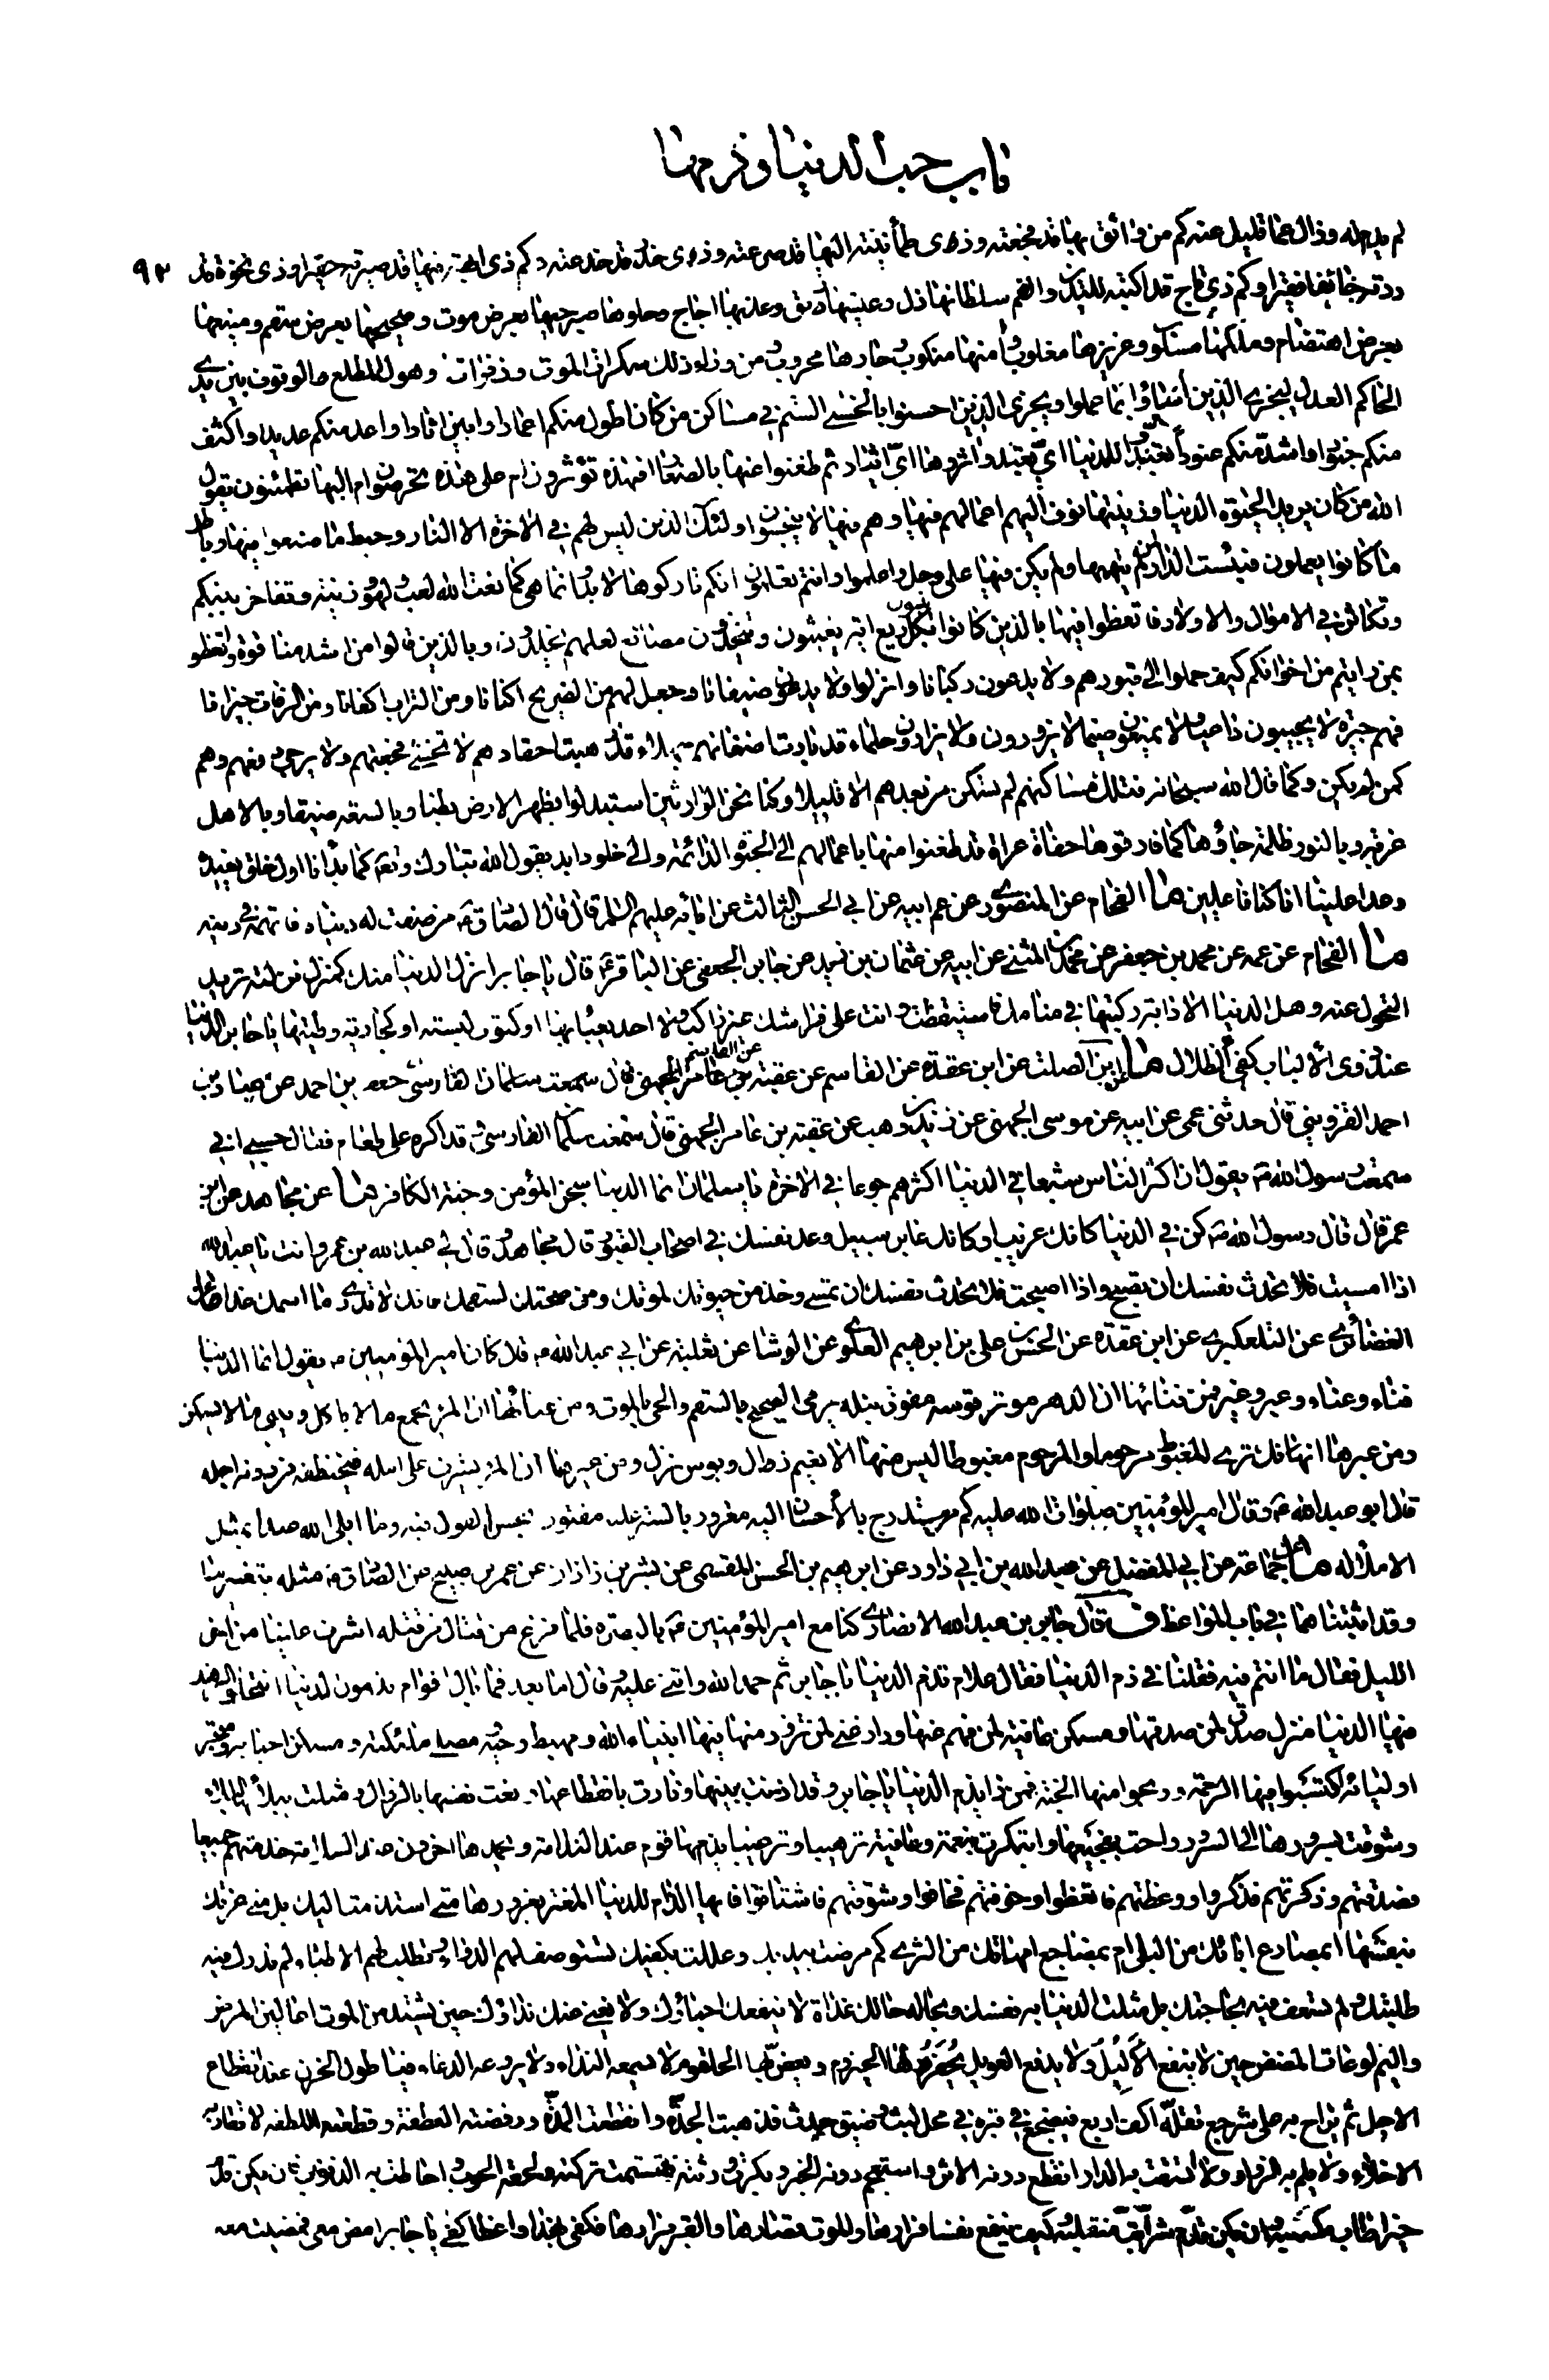 باب حب الدنيا وذمها
لم يدم له وزال عما قليل عنه كم من واثق بها قد فجعته وذي طمأنينة اليها قد صرعته وذي خدع قد خدعته وكم ذي ابهة فيها قد صيرته حقيرا وذي نخوة قد ٩٣
ردته خائفا فقيرا وكم ذي تاج قد اكبته لليدين والفم سلطانها ذل وعيشها رنق وعذبها اجاج وحلوها صبر حيها بعرض موت وصحيحها بعرض سقم ومنيعها
بعرض اهتضام وملكها مسلوب وعزيزها مغلوب وأمنها منكوب وجارها محروب ومن وراء ذلك سكرات الموت وزفراته وهول المطلع والوقوف بين يدي
الحاكم العدل ليجزي الذين أساؤا بما عملوا ويجزي الذين احسنوا بالحسنى الستم في مساكن من كان اطول منكم اعمارا وابين اثارا واعد منكم عديدا واكثف
منكم جنودا واشد منكم عنودا تعبدوا للدنيا اي تعبد واثروها اي ايثار ثم ظعنوا عنها بالصغار افهذه تؤثرون ام على هذه تحرصون ام اليها تطمئنون يقول
الله من كان يريد الحيوة الدنيا وزينتها نوف اليهم اعمالهم فيها وهم فيها لا يبخسون اولئك الذين ليس لهم في الاخرة الا النار وحبط ما صنعوا فيها وباطل
ما كانوا يعملون فبئست الدار لمن لم يتهمها ولم يكن فيها على وجل واعلموا وانتم تعلمون انكم تاركوها لا بد وانما هي كما نعت الله لعب ولهو وزينة وتفاخر بينكم
وتكاثر في الاموال والاولاد فاتعظوا فيها بالذين كانوا يبنون بكل ريع اية يعبثون ويتخذون مصانع لعلهم يخلدون وبالذين قالوا من اشد منا قوة واتعظوا
بمن رايتم من اخوانكم كيف حملوا الى قبورهم ولا يدعون ركبانا وانزلوا ولا يدعون ضيفانا وجعل لهم من الضريح اكنانا ومن التراب اكفانا ومن الرفات جيرانا
فهم جيرة لا يجيبون داعيا ولا يمنعون ضيما لا يزورون ولا يزارون حلماء قد بادت اضغانهم جهلاء قد ذهبت احقادهم لا تخشى فجعتهم ولا يرجى دفعهم وهم
كمن لم يكن وكما قال الله سبحانه فتلك مساكنهم لم تسكن من بعدهم الا قليلا وكنا نحن الوارثين استبدلوا بظهر الارض بطنا وبالسعة ضيقا وبالاهل
غربة وبالنور ظلمة جاؤها كما فارقوها حفاة عراة قد ظعنوا منها باعمالهم الى الحيوة الدائمة والى خلود ابد يقول الله تبارك وتعالى كما بدأنا اول خلق نعيده
وعدا علينا انا كنا فاعلين ما الفحام عن المنصوري عن عم ابيه عن ابي الحسن الثالث عن ابائه عليهم السلم قال قال الصادق ع من صفت له دنياه فاتهمه في دينه
ما الفحام عن عمه عن محمد بن جعفر عن محمد بن المثنى عن ابيه عن عثمان بن زيد عن جابر الجعفي عن الباقر ع قال يا جابر انزل الدنيا منك كمنزل نزلته تريد
التحول عنه وهل الدنيا الا دابة ركبتها في منامك فاستيقظت وانت على فراشك غير راكب ولا احد يعبأ بها او كثوب لبسته او كجارية وطئتها يا جابر الدنيا
عند ذوي الالباب كفيء الظلال ما ابن الصلت عن ابن عقدة عن القاسم بن جعفر بن احمد عن عباد بن
احمد القزويني قال حدثني عمي عن ابيه عن موسى الجهني عن زيد بن وهب عن عقبة بن عامر الجهني قال سمعت سلمان الفارسي ره قد اكره على طعام فقال حسبي اني
سمعت رسول الله ص يقول ان اكثر الناس شبعا في الدنيا اكثرهم جوعا في الاخرة يا سلمان انما الدنيا سجن المؤمن وجنة الكافر ما عن مجاهد عن ابن
عمر قال قال رسول الله ص كن في الدنيا كانك غريب او كانك عابر سبيل وعد نفسك في اصحاب القبور قال مجاهد وقال لي عبد الله بن عمر وانت يا عبد الله
اذا امسيت فلا تحدث نفسك ان تصبح واذا اصبحت فلا تحدث نفسك ان تمسي وخذ من حيوتك لموتك ومن صحتك لسقمك فانك لا تدري ما اسمك غدا ما
الغضائري عن التلعكبري عن ابن عقدة عن الحسن بن علي بن ابرهيم العلوي عن الوشا عن ثعلبة عن ابي عبد الله ع قال كان امير المؤمنين ع يقول انما الدنيا
فناء وعناء وعبر وغير فمن فنائها ان الدهر موتر قوسه مفوق نبله يرمي الصحيح بالسقم والحي بالموت ومن عنائها ان المرء يجمع ما لا ياكل ويبني ما لا يسكن
ومن عبرها انها انك ترى المغبوط مرحوما والمرحوم مغبوطا ليس منها الا نعيم زال وبوس نزل ومن غيرها ان المرء يشرف على امله فيختطفه من دونه اجله
قال ابو عبد الله ع وقال امير المؤمنين صلوات الله عليه كم من مستدرج بالأحسان اليه مغرور بالستر عليه مفتون بحسن القول فيه وما ابلى الله عبدا بمثل
الاملاء له ما جماعة عن ابي المفضل عن عبد الله بن ابي داود عن ابرهيم بن الحسن المقسمي عن بشر بن زاذان عن عمر بن صبيح عن الصادق ع مثله بتغيير ما
وقد اثبتناهما في باب المواعظ ف قال جابر بن عبد الله الانصاري كنا مع امير المؤمنين ع بالبصرة فلما فرغ من قتال من قاتله اشرف علينا من اخر
الليل فقال ما انتم فيه فقلنا في ذم الدنيا فقال علام تذم الدنيا يا جابر ثم حمد الله واثنى عليه وقال اما بعد فما بال اقوام يذمون الدنيا انتحلوا الزهد
فيها الدنيا منزل صدق لمن صدقها ومسكن عافية لمن فهم عنها ودار غنى لمن تزود منها فيها انبياء الله ومهبط وحيه ومصلى ملئكته ومسكن احبائه ومتجر
اوليائه اكتسبوا فيها الرحمة وربحوا منها الجنة فمن ذا يذم الدنيا يا جابر وقد اذنت ببينها ونادت بانقطاعها ونعت نفسها بالزوال ومثلت ببلائها البلاء
وشوقت بسرورها الى السرور وراحت بفجيعة وابتكرت بنعمة وعافية ترهيبا وترغيبا يذمها قوم عند الندامة ويحمدها اخرون عند السلامة خدمتهم جميعا
فصدقتهم وذكرتهم فذكروا ووعظتهم فاتعظوا وخوفتهم فخافوا وشوقتهم فاشتاقوا فايها الذام للدنيا المغتر بغرورها متى استذمت اليك بل متى غرتك
بنفسها ابمصارع ابائك من البلى ام بمضاجع امهاتك من الثرى كم مرضت بيديك وعللت بكفيك تستوصف لهم الدواء وتطلب لهم الاطباء لم تدرك فيه
طلبتك ولم تسعف فيه بحاجتك بل مثلت الدنيا به نفسك وبحاله حالك غداة لا ينفعك احباؤك ولا يغني عنك نداؤك حين يشتد من الموت اعالين المرض
واليم لوعات المضض حين لا ينفع الأليل ولا يدفع العويل يحفز بها الحيزوم ويغص بها الحلقوم لا يسمعه النداء ولا يروعه الدعاء فيا طول الحزن عند انقطاع
الاجل ثم يراح به على شرجع تقله اكف اربع فيضجع في قبره في محل لبث وضيق جدث فذهبت الجدة وانقطعت المدة ورفضته العطفة وقطعته اللطفة لا تقاربه
الاخلاء ولا يلم به الزوار ولا اتسقت به الدار انقطع دونه الاثر واستعجم دونه الخبر وبكرت ورثته فقسمت تركته ولحقه الحوب واحاطت به الذنوب فان يكن قدم
خيرا طاب مكسبه وان يكن قدم شرا تب منقلبه وكيف ينفع نفسا قرارها والموت قصارها والقبر مزارها فكفى بهذا واعظا كفى يا جابر امض معي فمضيت معه